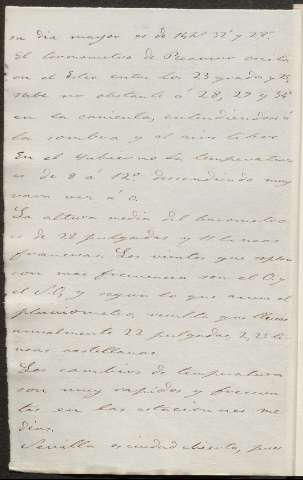 su dia mayor es de 14h. 32' y 28".
El termometro de Reamur oscila
en el Estio entre los 23 grados y 25,
sube no obstante á 28, 29 y 34º
en la canicula, entendiendose á
la sombra y al aire libre.
En el Ynbierno la temperatura
es de 8 á 12º descendiendo muy
rara vez á 0.
La altura media del barometro
es de 28 pulgadas y 11 lineas
francesas. Los vientos que reynan
con mas frecuencia son el O. y
el S.O, y segun lo que arroja el
pluviometro, resulta que llueve
anualmente 22 pulgadas, 2,25 li-
neas castellanas.
Los cambios de temperatura
son muy rapidos y frecuen-
tes en las estaciones me-
dias.
Sevilla es ciudad abierta, pues